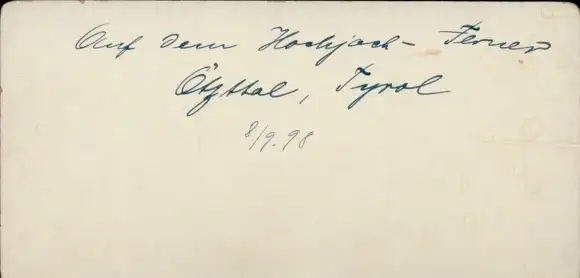 Auf dem Hochjoch- Ferner
Ötzthal, Tyrol
8/9. 98